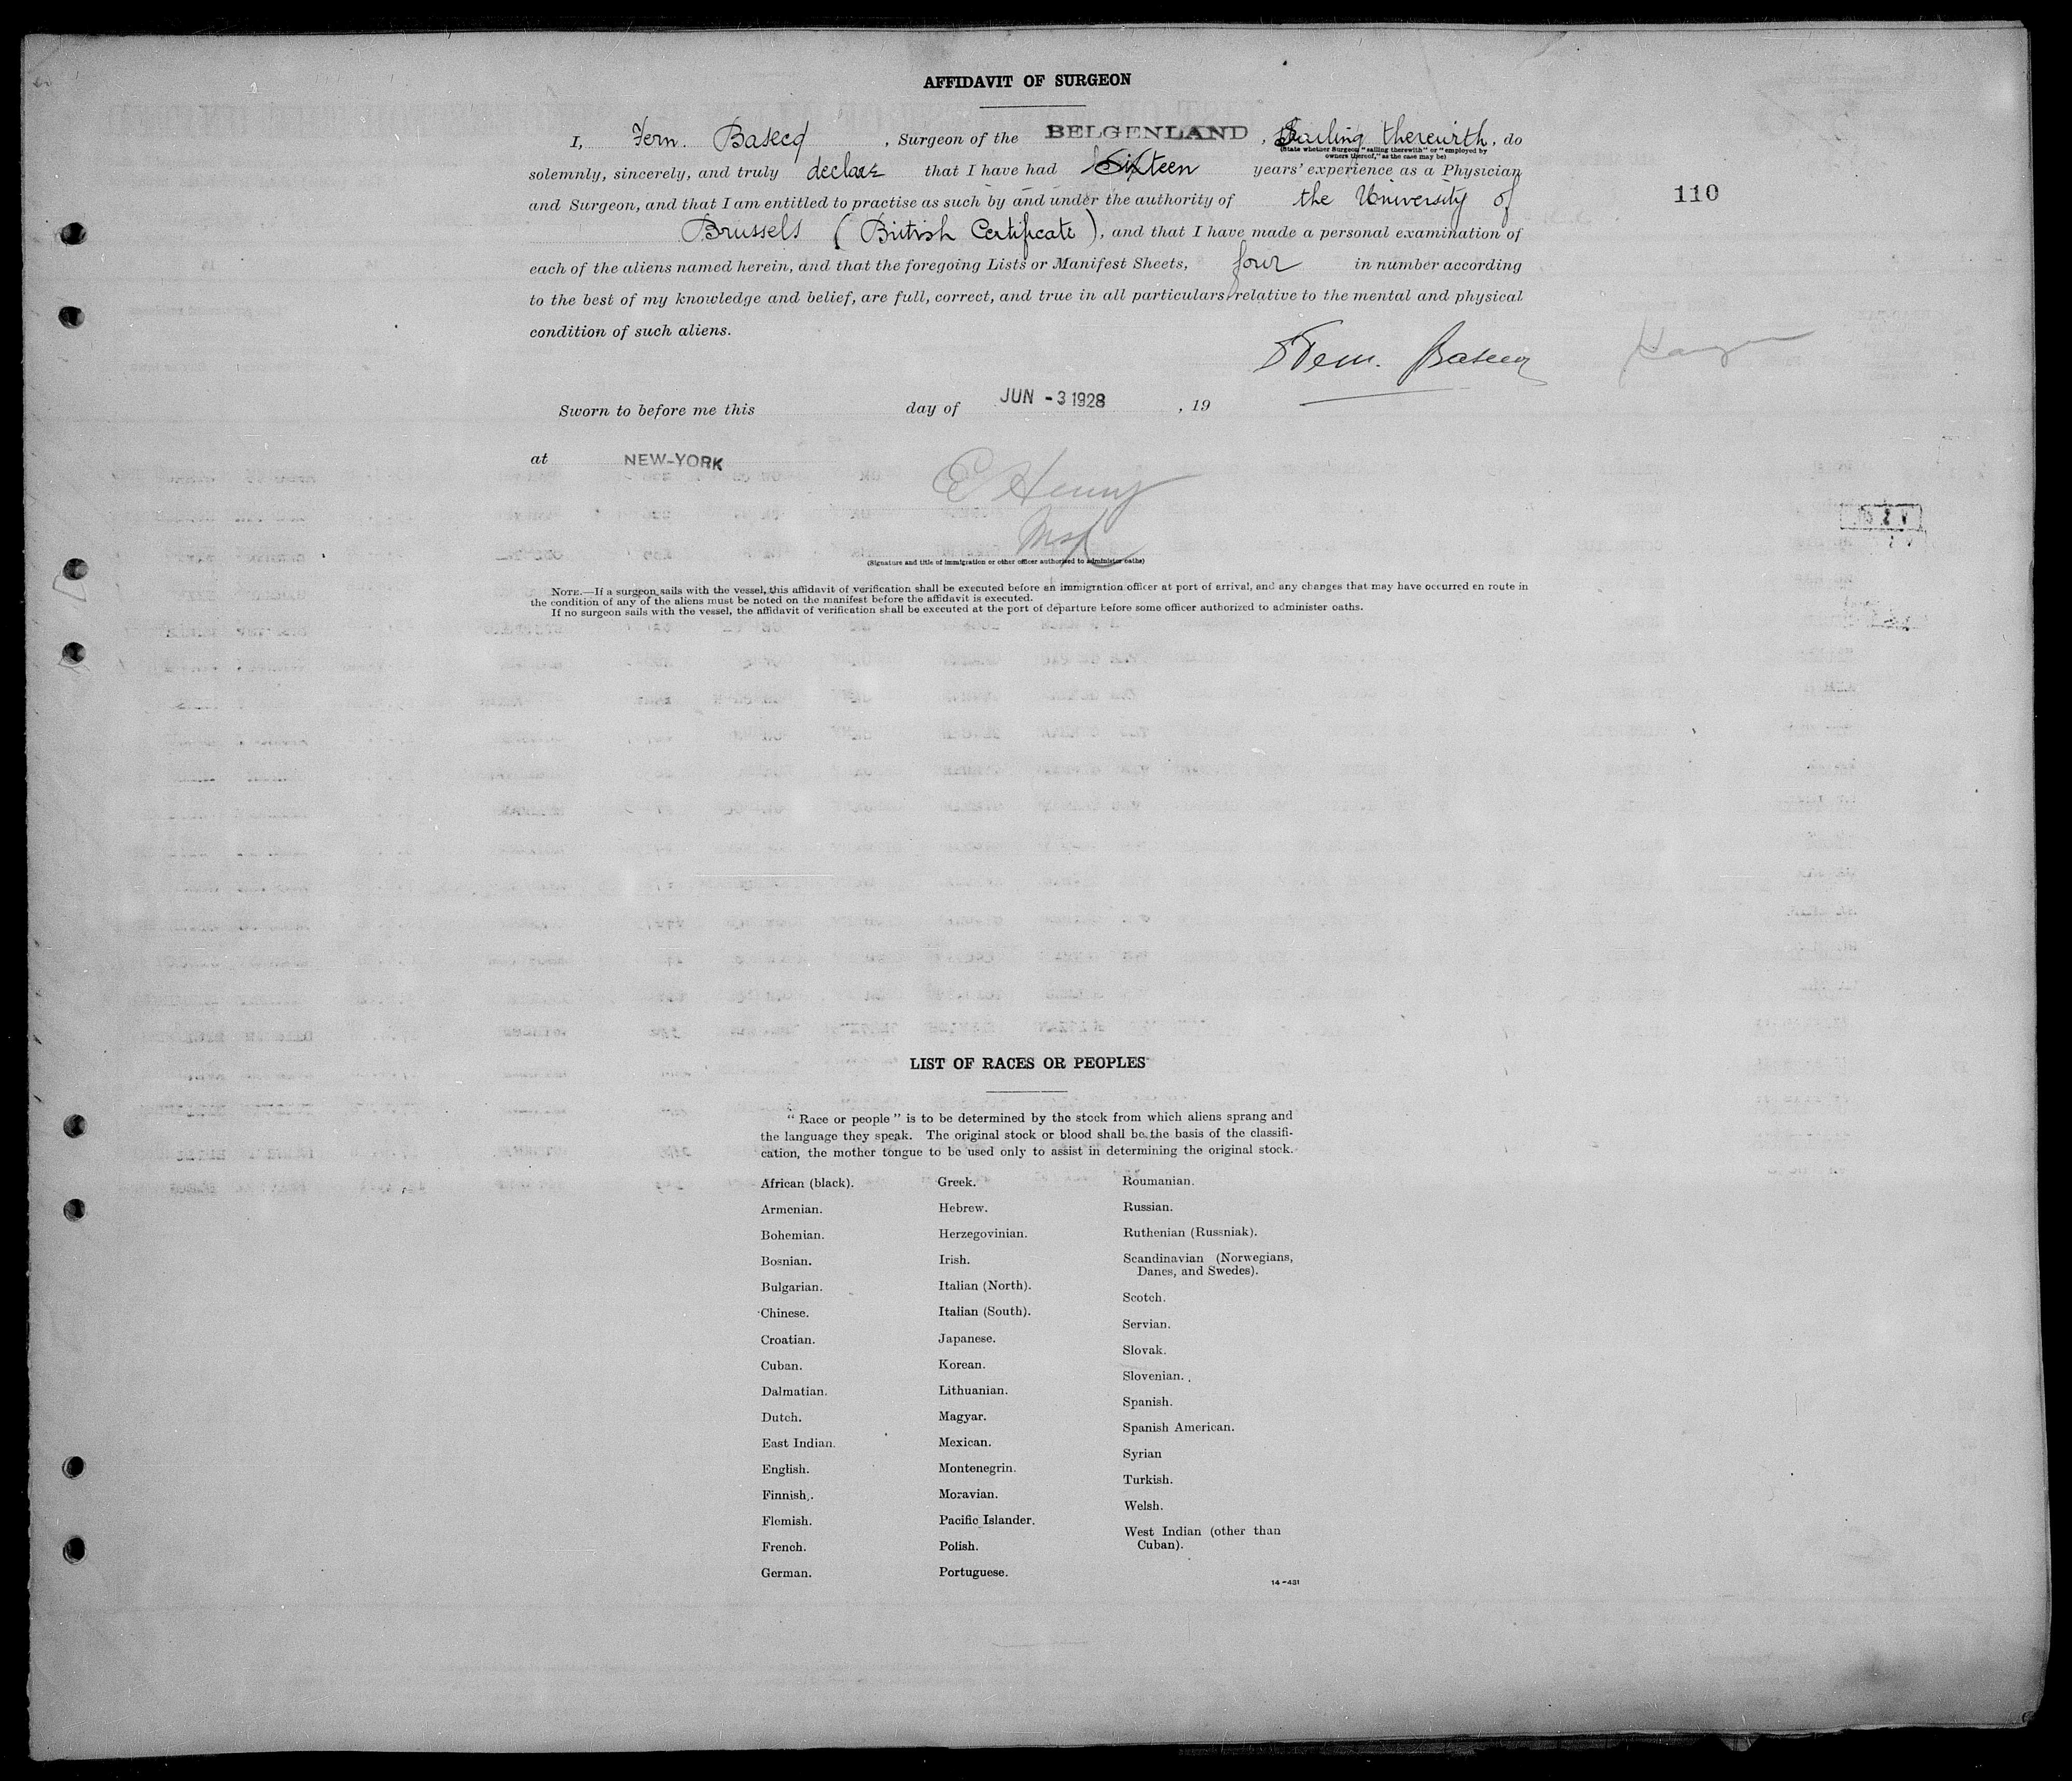 AFFIDAVIT OF SURGEON
I, Fern. Basecq , Surgeon of the BELGENLAND , Sailing therewith, do
(State whether Surgeon "sailing therewith" or "employed by
owners thereof," as the case may be)
solemnly, sincerely, and truly declare that I have had Sixteen years' experience as a Physician
and Surgeon, and that I am entitled to practise as such by and under the authority of the University of
110
Brussels (British Certificate), and that I have made a personal examination of
each of the aliens named herein, and that the foregoing Lists or Manifest Sheets, four in number according
to the best of my knowledge and belief, are full, correct, and true in all particulars relative to the mental and physical
condition of such aliens.
Fern. Basecq
Sworn to before me this day of JUN -3 1928 , 19
at NEW-YORK
E Henry
(Signature and title of immigration or other officer authorized to administer oaths)
NOTE.—If a surgeon sails with the vessel, this affidavit of verification shall be executed before an immigration officer at port of arrival, and any changes that may have occurred en route in
the condition of any of the aliens must be noted on the manifest before the affidavit is executed.
If no surgeon sails with the vessel, the affidavit of verification shall be executed at the port of departure before some officer authorized to administer oaths.
LIST OF RACES OR PEOPLES
"Race or people" is to be determined by the stock from which aliens sprang and
the language they speak. The original stock or blood shall be the basis of the classifi-
cation, the mother tongue to be used only to assist in determining the original stock.
African (black).
Armenian.
Bohemian.
Bosnian.
Bulgarian.
Chinese.
Croatian.
Cuban.
Dalmatian.
Dutch.
East Indian.
English.
Finnish.
Flemish.
French.
German.
Greek.
Hebrew.
Herzegovinian.
Irish.
Italian (North).
Italian (South).
Japanese.
Korean.
Lithuanian.
Magyar.
Mexican.
Montenegrin.
Moravian.
Pacific Islander.
Polish.
Portuguese.
Roumanian.
Russian.
Ruthenian (Russniak).
Scandinavian (Norwegians,
Danes, and Swedes).
Scotch.
Servian.
Slovak.
Slovenian.
Spanish.
Spanish American.
Syrian
Turkish.
Welsh.
West Indian (other than
Cuban).
14-431